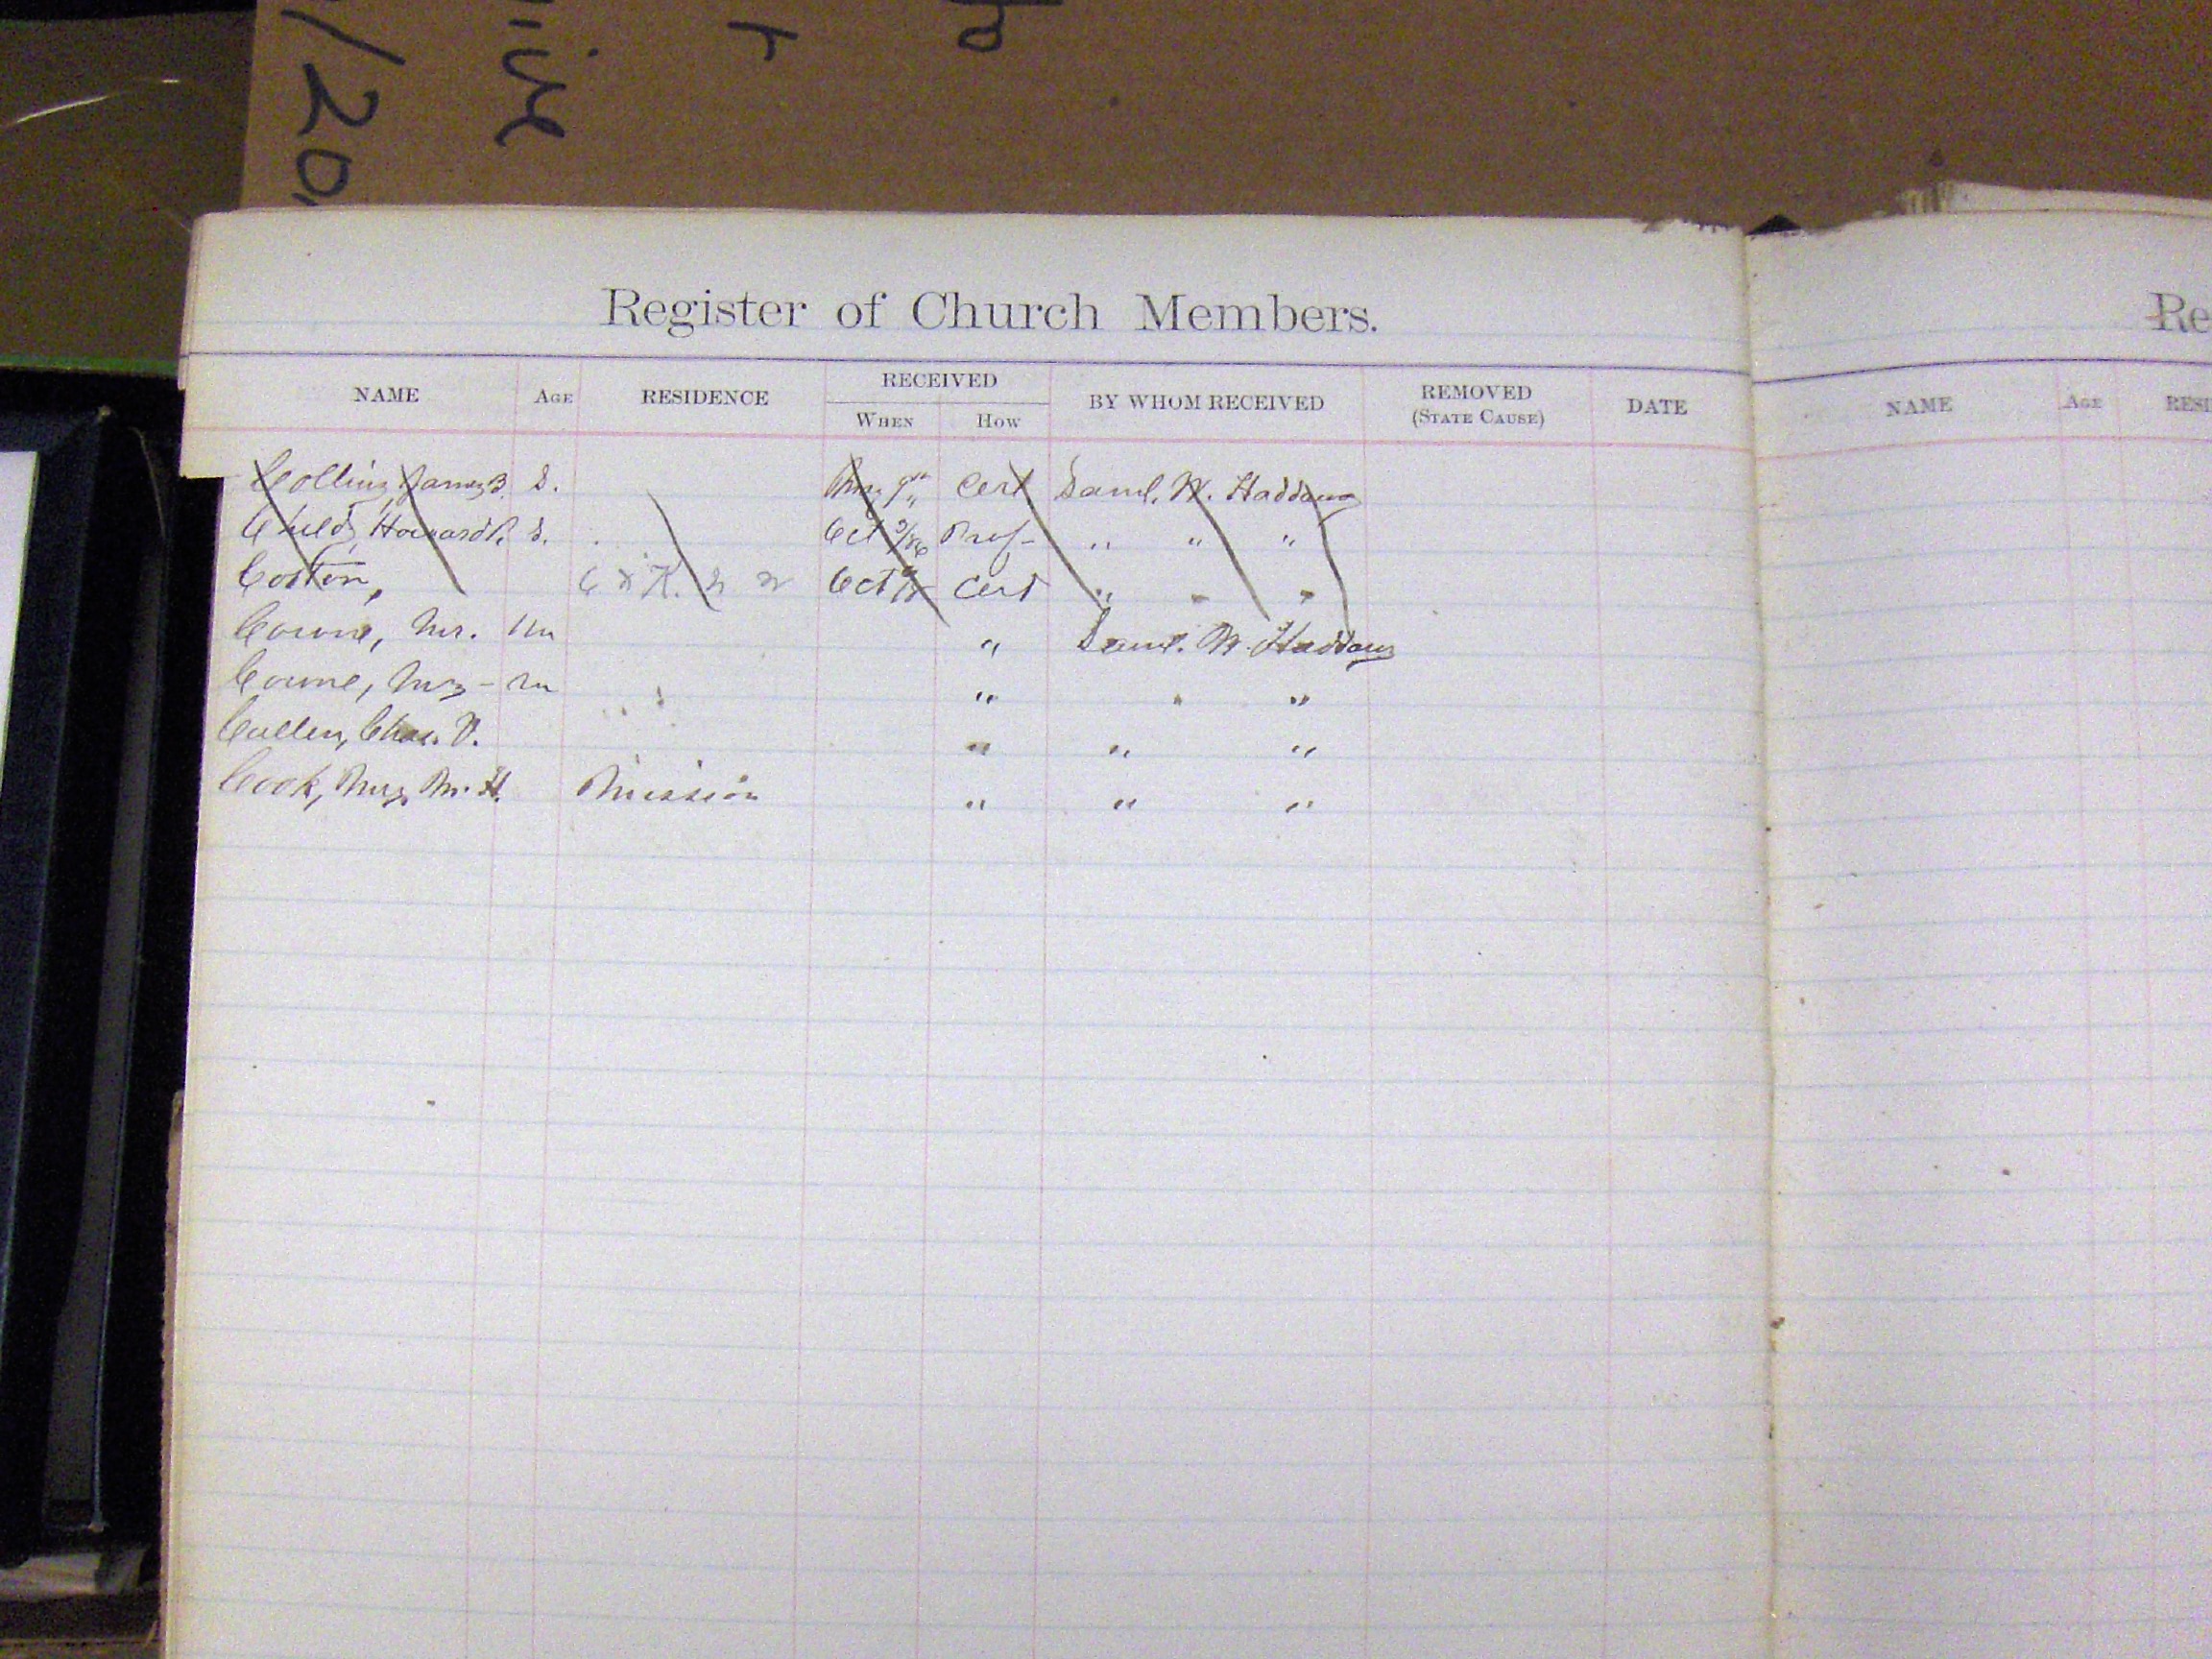 /20
Register of Church Members.
NAME AGE RESIDENCE RECEIVED WHEN HOW BY WHOM RECEIVED REMOVED (STATE CAUSE) DATE
Collins, James B. S. Cert Saml. W. Haddaway
Childs, Howard P. S. Oct 3/86 Prof- " " "
Coston, Oct Cert " " "
Cowne, Mr. m " Saml. W. Haddaway
Cowne, Mrs - m " " "
Cullen, Chas. V. " " "
Cook, Mrs M. H. Mission " " "
Re
NAME AGE RESI